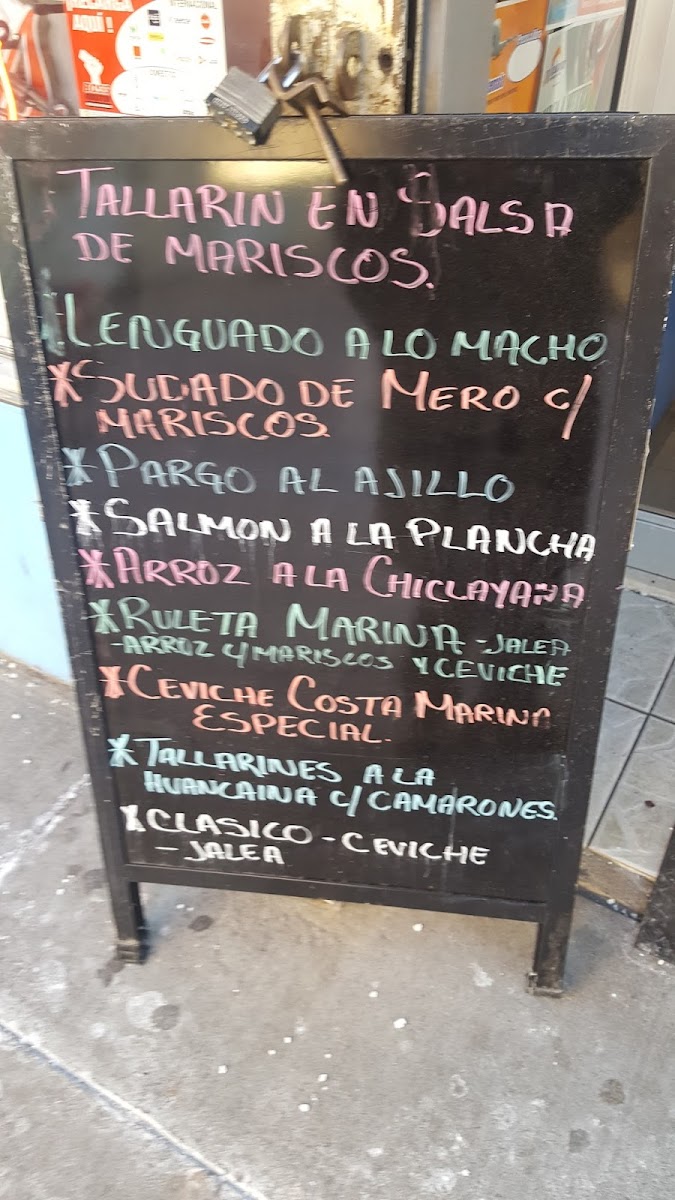 RECARGA
AQUÍ !
INTERNACIONAL
TALLARIN EN SALSA
DE MARISCOS.
*LENGUADO A LO MACHO
*SUDADO DE MERO C/
MARISCOS
*PARGO AL AJILLO
*SALMON A LA PLANCHA
*ARROZ A LA CHICLAYANA
*RULETA MARINA -JALEA
-ARROZ C/MARISCOS Y CEVICHE
*CEVICHE COSTA MARINA
ESPECIAL.
*TALLARINES A LA
HUANCAINA C/CAMARONES.
*CLASICO - CEVICHE
- JALEA